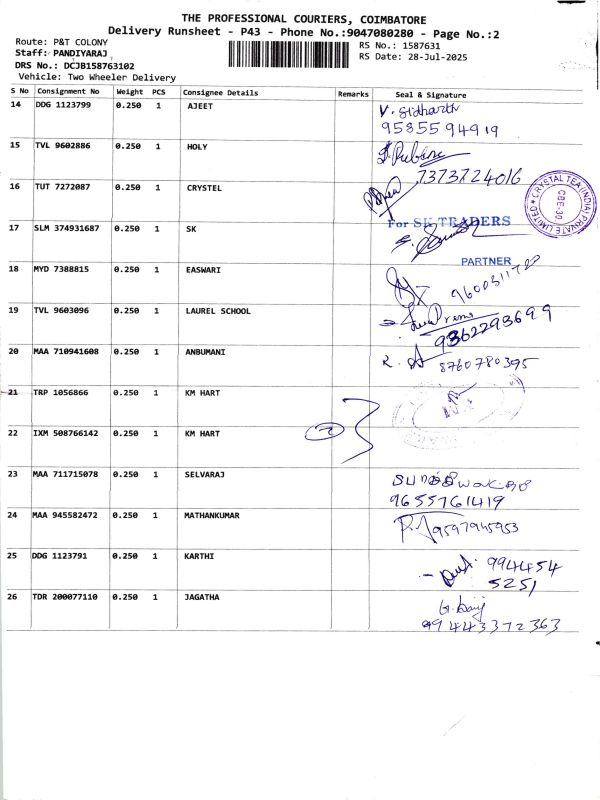 THE PROFESSIONAL COURIERS, COIMBATORE
Delivery Runsheet - P43 - Phone No.:9047080280 - Page No.:2
Route: P&T COLONY
Staff: PANDIYARAJ
DRS No.: DCJB158763102
Vehicle: Two Wheeler Delivery
RS No.: 1587631
RS Date: 28-Jul-2025
S No Consignment No Weight PCS Consignee Details Remarks Seal & Signature
14 DDG 1123799 0.250 1 AJEET V. Sidharth
9585594919
15 TVL 9602886 0.250 1 HOLY
7373724016
16 TUT 7272087 0.250 1 CRYSTEL
CRYSTAL TEA (INDIA) PRIVATE LIMITED
CBE-30
17 SLM 374931687 0.250 1 SK For SK TRADERS
PARTNER
18 MYD 7388815 0.250 1 EASWARI
19 TVL 9603096 0.250 1 LAUREL SCHOOL
9362293699
20 MAA 710941608 0.250 1 ANBUMANI
8760780395
21 TRP 1056866 0.250 1 KM HART
22 IXM 508766142 0.250 1 KM HART 2
23 MAA 711715078 0.250 1 SELVARAJ
9655761419
24 MAA 945582472 0.250 1 MATHANKUMAR
9597945953
25 DDG 1123791 0.250 1 KARTHI 994454
5251
26 TDR 200077110 0.250 1 JAGATHA
99443372363